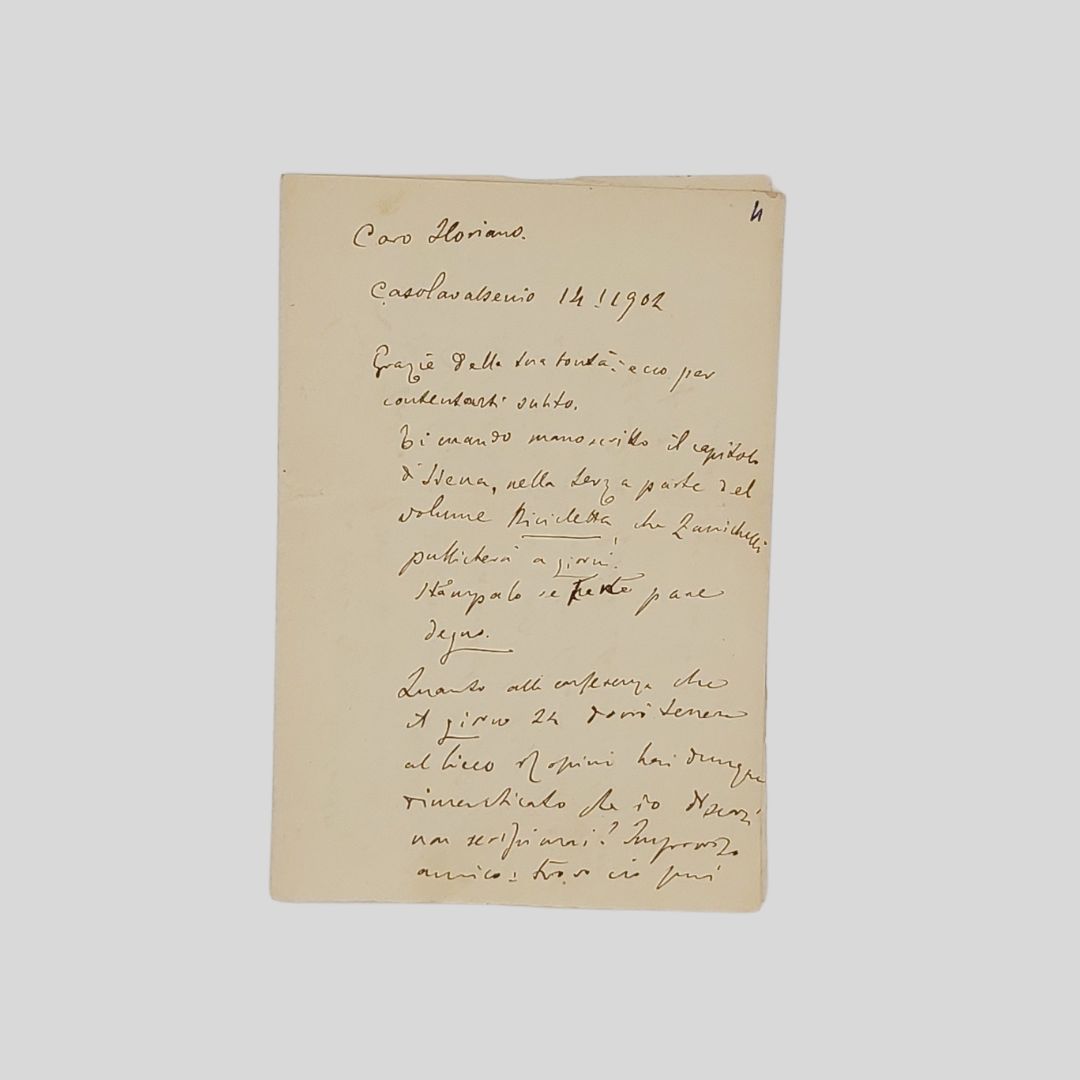 4
Caro Floriano.
Casolavalsenio 14 1 1902
Grazie della tua bontà: ecco per
contentarti subito.
Ti mando manoscritto il capitolo
di Siena, nella terza parte del
volume Bicicletta, che Zanichelli
pubblicherà a giorni.
Stampalo se te ne pare
degno.
Quanto alla conferenza che
il giorno 24 dovrò tenere
al liceo Rossini hai dunque
dimenticato che io discorsi
non scrissi mai? Improvviso
amico: trovo ciò più